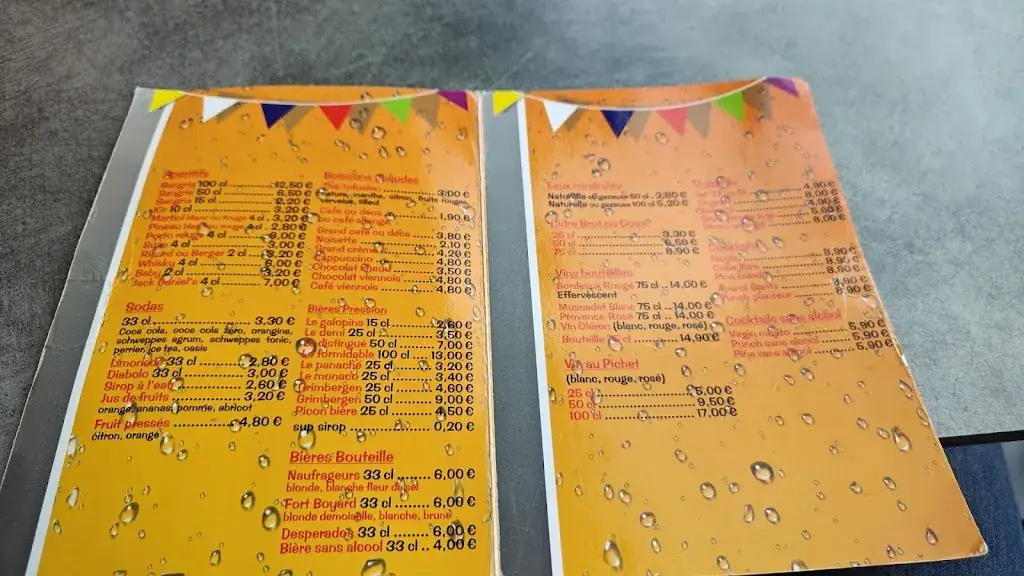 Apéritifs
Sangria 100 cl 12,50 €
Sangria 50 cl 6,50 €
Sangria 15 cl 2,20 €
Kir 10 cl 3,20 €
Pineau blanc ou rouge 4 cl 3,20 €
2,80 €
Porto rouge 4 cl 6,00 €
4 cl 3,00 €
Ricard ou Berger 2 cl 3,20 €
Whisky 4 cl 6,00 €
Baby 2 cl 3,20 €
Jack Daniel's 4 cl 7,00 €
Sodas
33 cl 3,30 €
Coca cola, coca cola zéro, orangina,
schweppes agrum, schweppes tonic,
perrier, ice tea, oasis
Limonade 33 cl 2,80 €
Diabolo 33 cl 3,00 €
Sirop à l'eau 2,60 €
Jus de fruits 3,20 €
orange, ananas, pomme, abricot
Fruit pressés 4,80 €
citron, orange
Boissons chaudes
Thé infusion 3,00 €
nature, menthe, citron, fruits rouges,
verveine, tilleul
Café ou déca
ou café allongé 1,90 €
Grand café ou déca 3,80 €
Noisette 2,10 €
Grand crème 4,20 €
Cappuccino 4,80 €
Chocolat chaud 3,50 €
Chocolat viennois 4,80 €
Café viennois 4,80 €
Bières Pression
Le galopins 15 cl 2,60 €
Le demi 25 cl 3,50 €
Le distingue 50 cl 7,00 €
Le formidable 100 cl 13,00 €
Le panaché 25 cl 3,20 €
Le monaco 25 cl 3,40 €
Grimbergen 25 cl 4,60 €
Grimbergen 50 cl 9,00 €
Picon bière 25 cl 4,50 €
sup sirop 0,20 €
Bières Bouteille
Naufrageurs 33 cl 6,00 €
blonde, blanche fleur de sel
Fort Boyard 33 cl 6,00 €
blonde demoiselle, blanche, brune
Desperados 33 cl 6,00 €
Bière sans alcool 33 cl .. 4,00 €
Eaux minérales
Naturelle ou gazeuse 50 cl . 3,80 €
Naturelle ou gazeuse 100 cl 5,20 €
Cidre Brut ou Doux
25 cl 3,30 €
50 cl 6,50 €
75 cl 8,90 €
Vins bouteilles
Bordeaux Rouge 75 cl .. 14,00 €
Effervescent
Muscadet Blanc 75 cl .. 14,00 €
Provence Rosé 75 cl .. 14,00 €
Vin Oléron (blanc, rouge, rosé)
Bouteille 75 cl 14,90 €
Vin au Pichet
(blanc, rouge, rosé)
25 cl 5,00 €
50 cl 9,50 €
100 cl 17,00 €
4,90 €
6,00 €
4,90 €
5,80 €
6,00 €
Cocktails
8,90 €
Mojito 8,90 €
Cuba libre 8,90 €
Pina colada
Spritz 8,90 €
Punch planteur 8,90 €
Cocktails sans alcool
Virgin mojito 5,90 €
Punch sans alcool 5,90 €
Piña sans alcool 5,90 €